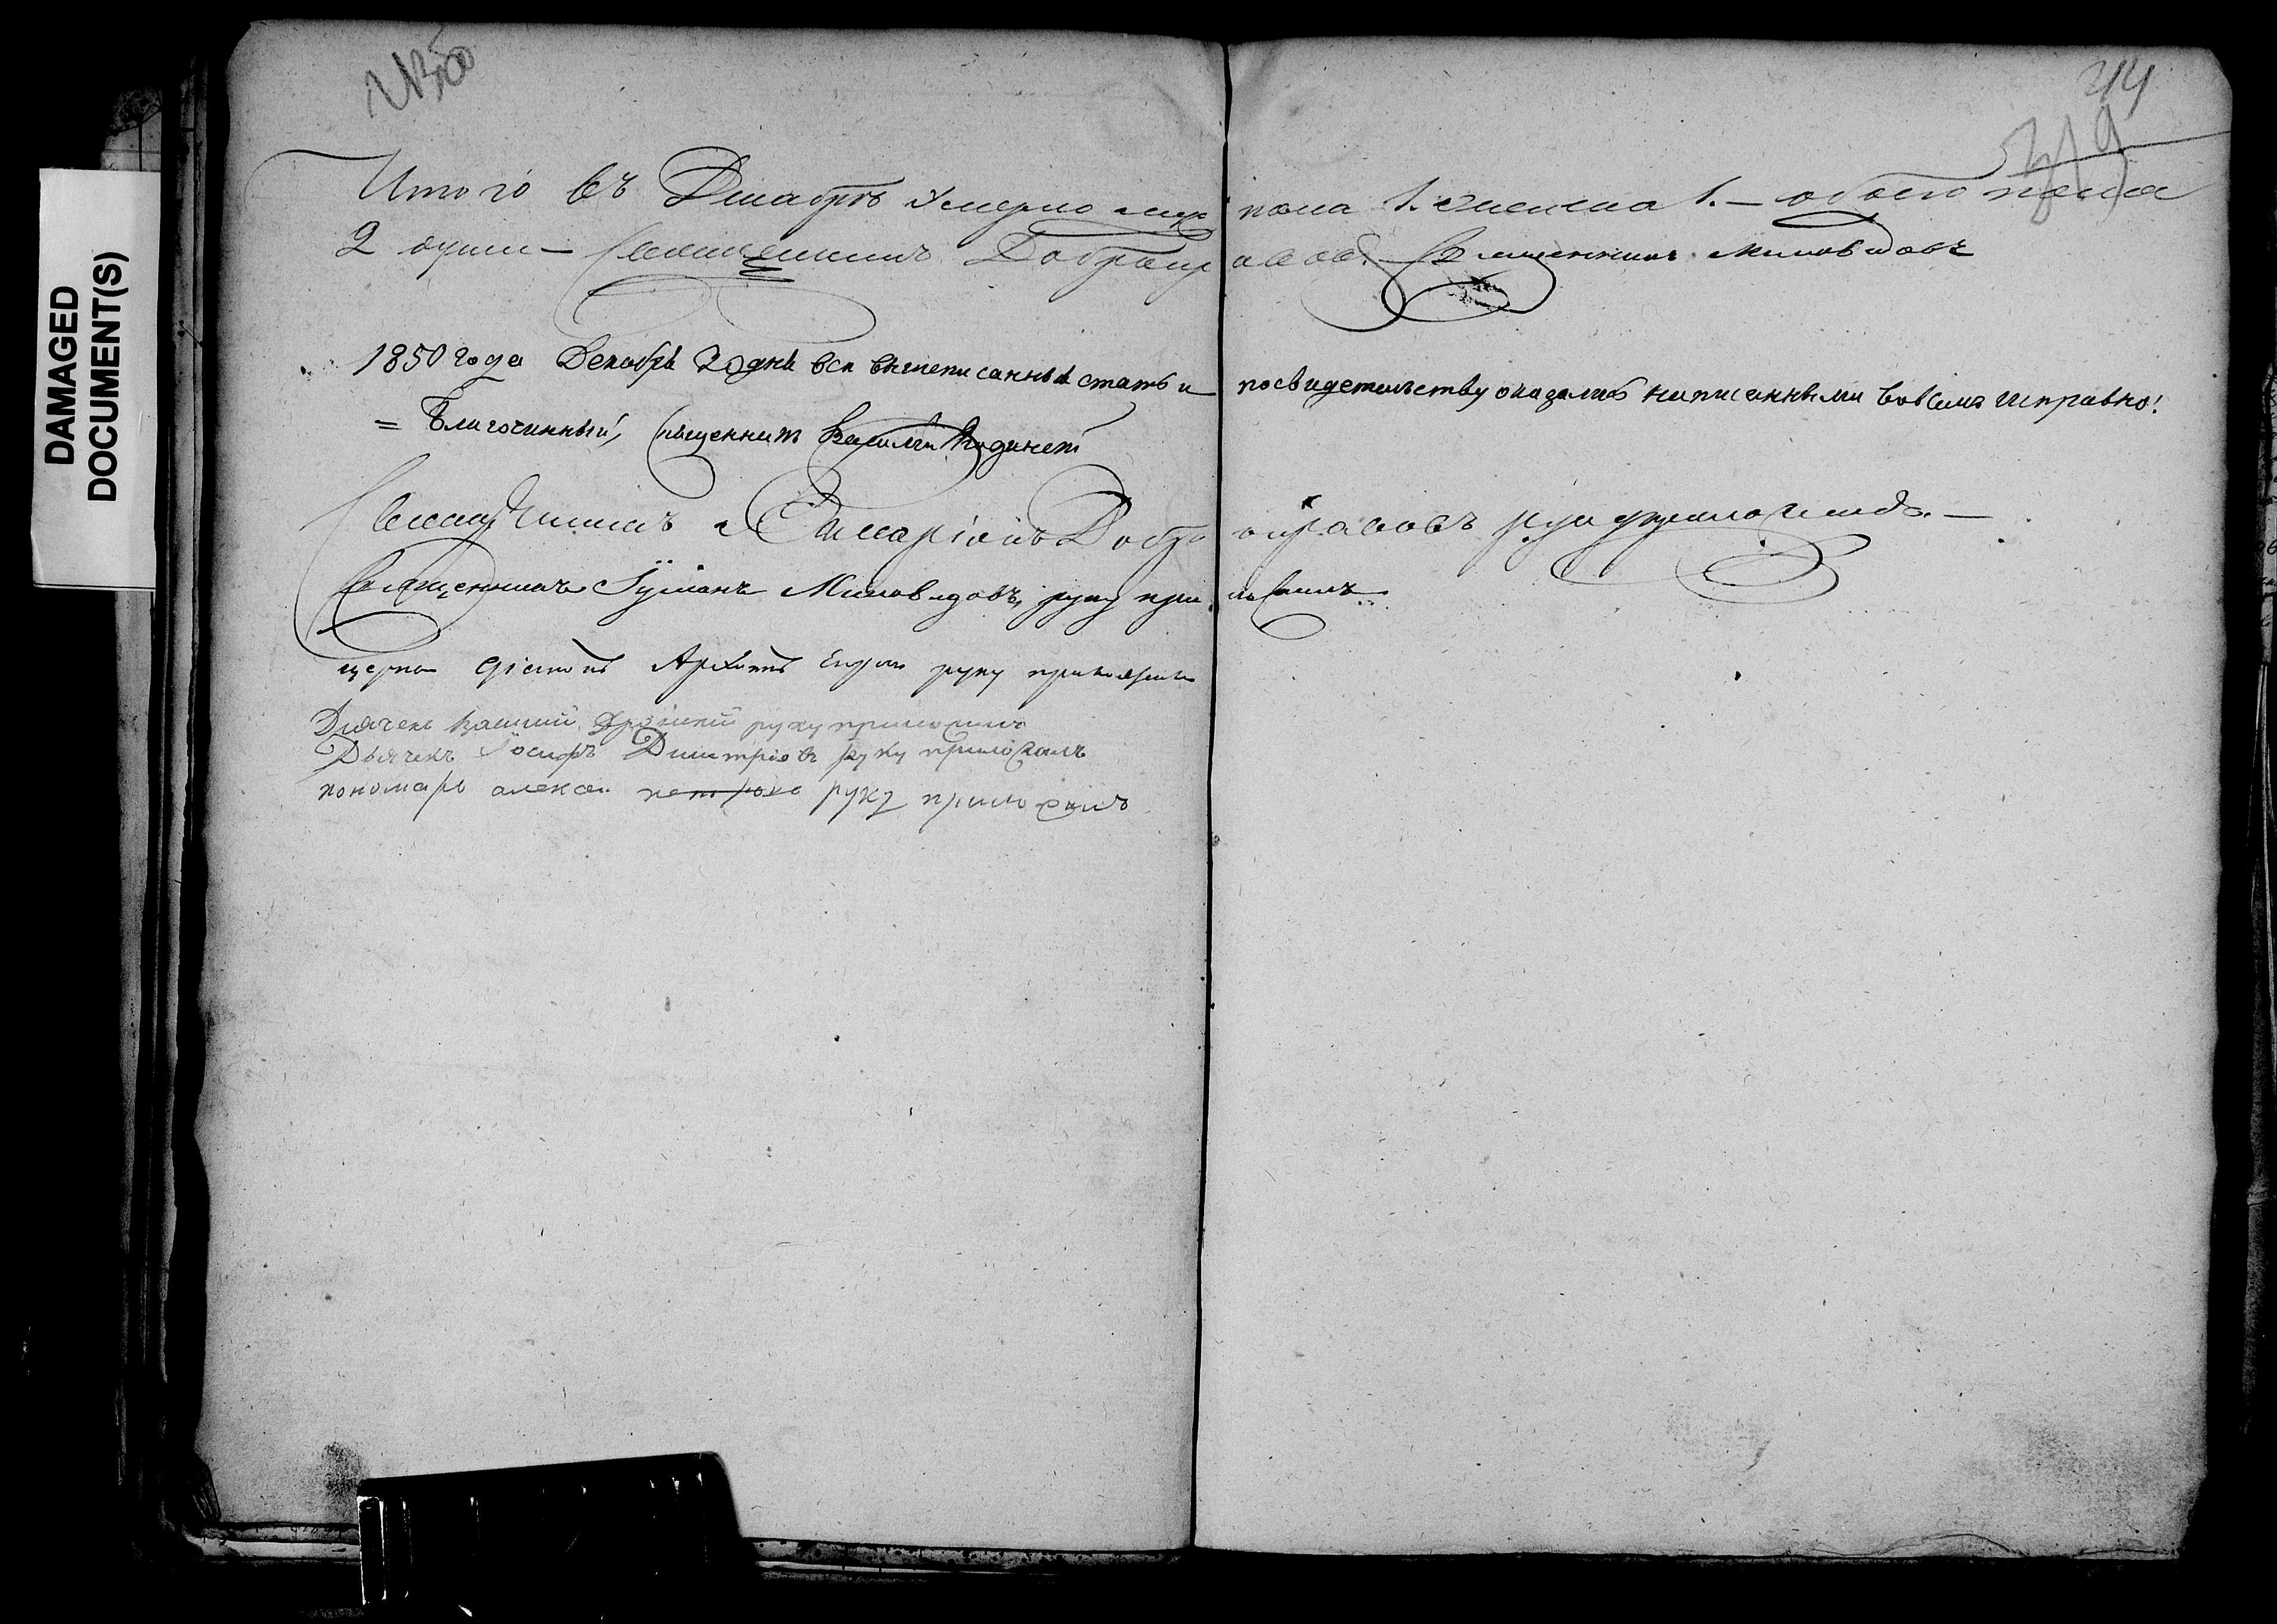 DAMAGED
DOCUMENT(S)
44
Итого въ Декабрѣ Умерло муж пола 1. женска 1. — обоего пола
2 души — Священникъ Добронравовъ. Священникъ Миловидовъ
1850 года Декабря 20 дня вси вышеписанныя статьи по свидетельству оказались написанными вовсемъ исправно!
= Благочинный, Священникъ Василий
Священникъ Добронравовъ руку приложилъ. —
Священникъ Миловидовъ, руку приложилъ
руку приложилъ
Дьячекъ руку приложилъ
Дьячекъ Іосифъ Димитріевъ руку приложилъ
пономарь алексей петровъ руку приложилъ